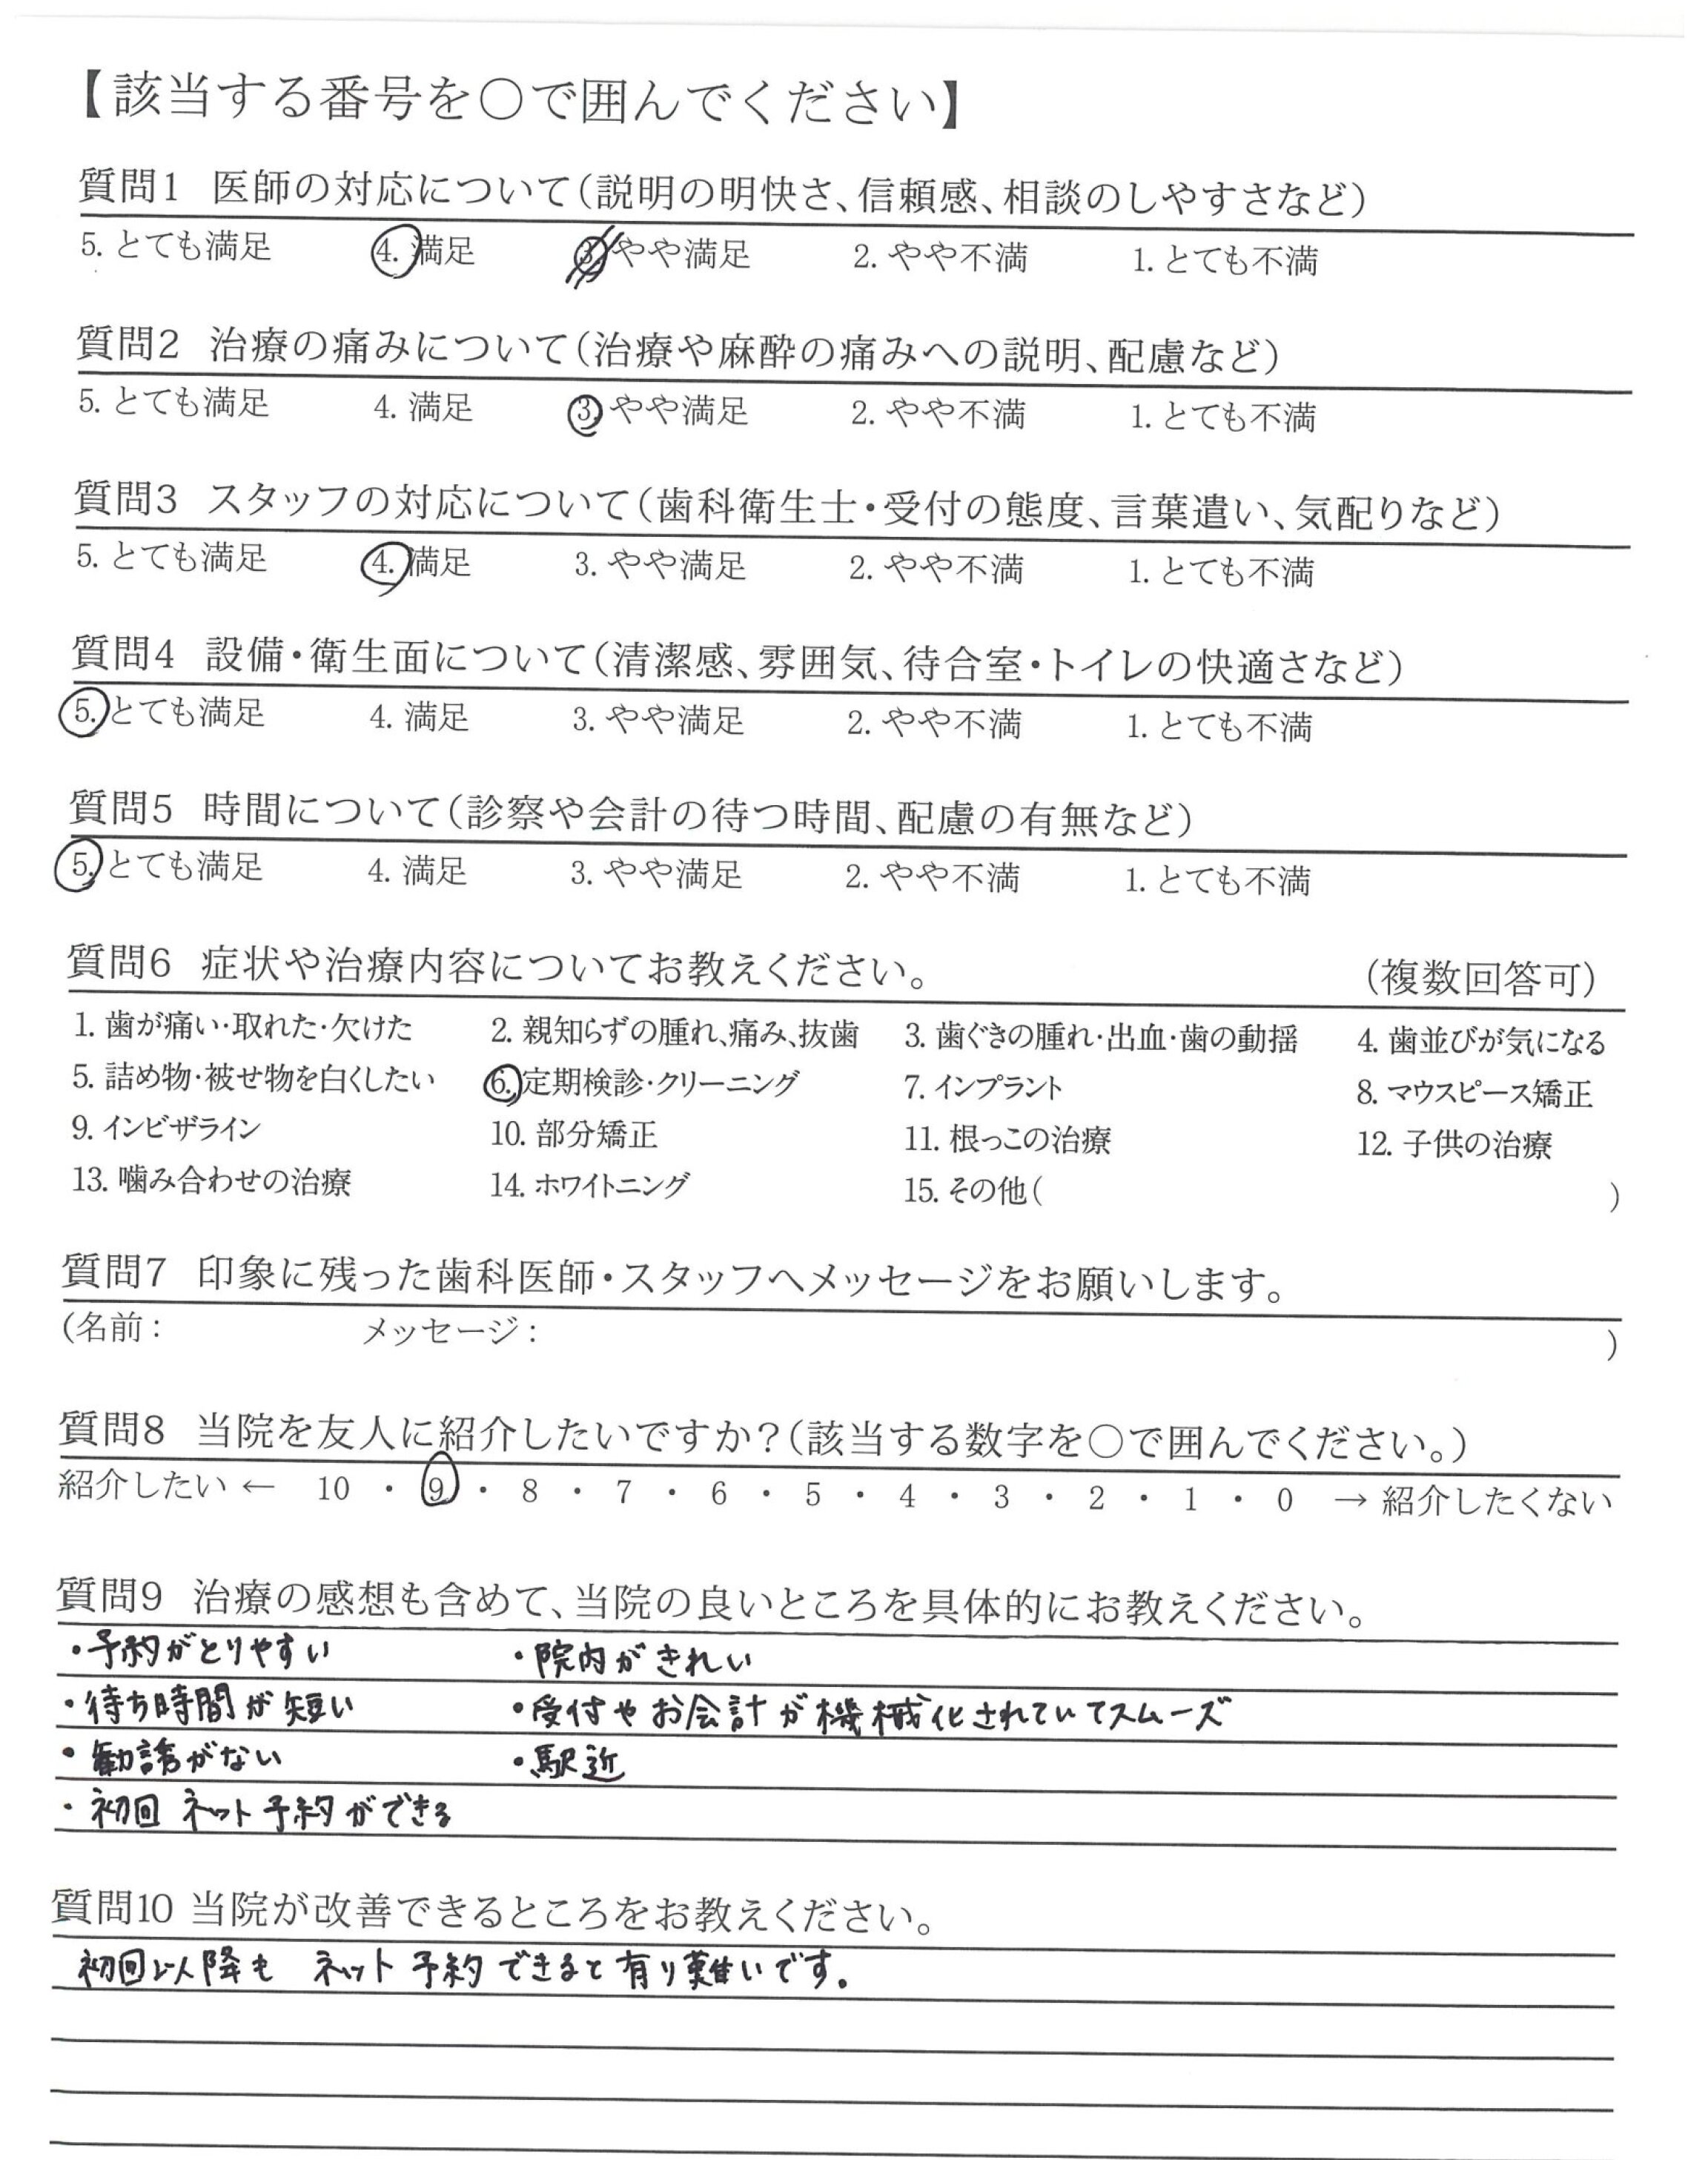 【該当する番号を○で囲んでください】
質問1 医師の対応について(説明の明快さ、信頼感、相談のしやすさなど)
5. とても満足 4. 満足 3. やや満足 2. やや不満 1. とても不満
質問2 治療の痛みについて(治療や麻酔の痛みへの説明、配慮など)
5. とても満足 4. 満足 3. やや満足 2. やや不満 1. とても不満
質問3 スタッフの対応について(歯科衛生士・受付の態度、言葉遣い、気配りなど)
5. とても満足 4. 満足 3. やや満足 2. やや不満 1. とても不満
質問4 設備・衛生面について(清潔感、雰囲気、待合室・トイレの快適さなど)
5. とても満足 4. 満足 3. やや満足 2. やや不満 1. とても不満
質問5 時間について(診察や会計の待つ時間、配慮の有無など)
5. とても満足 4. 満足 3. やや満足 2. やや不満 1. とても不満
質問6 症状や治療内容についてお教えください。 (複数回答可)
1. 歯が痛い・取れた・欠けた 2. 親知らずの腫れ、痛み、抜歯 3. 歯ぐきの腫れ・出血・歯の動揺 4. 歯並びが気になる
5. 詰め物・被せ物を白くしたい 6. 定期検診・クリーニング 7. インプラント 8. マウスピース矯正
9. インビザライン 10. 部分矯正 11. 根っこの治療 12. 子供の治療
13. 噛み合わせの治療 14. ホワイトニング 15. その他( )
質問7 印象に残った歯科医師・スタッフへメッセージをお願いします。
(名前： メッセージ： )
質問8 当院を友人に紹介したいですか？(該当する数字を○で囲んでください。)
紹介したい ← 10 ・ 9 ・ 8 ・ 7 ・ 6 ・ 5 ・ 4 ・ 3 ・ 2 ・ 1 ・ 0 → 紹介したくない
質問9 治療の感想も含めて、当院の良いところを具体的にお教えください。
・予約がとりやすい ・院内がきれい
・待ち時間が短い ・受付やお会計が機械化されていてスムーズ
・勧誘がない ・駅近
・初回 ネット予約ができる
質問10 当院が改善できるところをお教えください。
初回以降も ネット予約できると有り難いです。